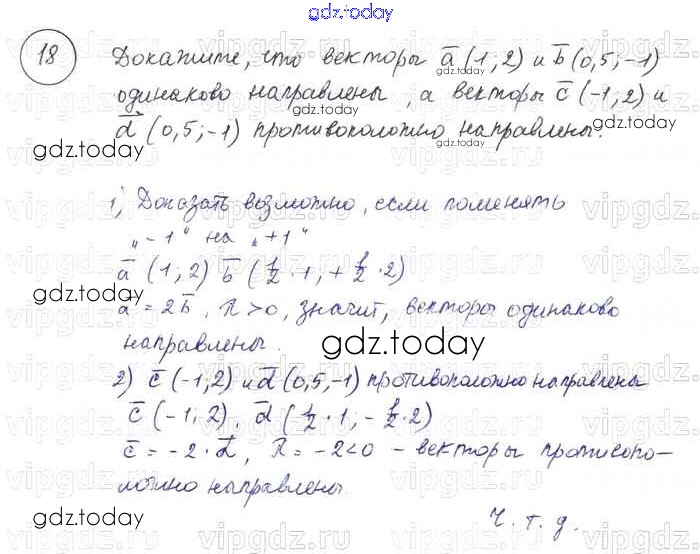 gdz.today
18 Докажите, что векторы a̅ (1; 2) и b̅ (0,5; -1)
одинаково направлены, а векторы c̅ (-1; 2) и
d̅ (0,5; -1) противоположно направлены.
gdz.today
1) Доказать возможно, если поменять
"-1" на "+1"
a̅ (1; 2) b̅ (1/2 · 1; + 1/2 · 2)
a̅ = 2b̅, λ > 0, значит, векторы одинаково
направлены.
gdz.today
2) c̅ (-1; 2) и d̅ (0,5; -1) противоположно направлены
c̅ (-1; 2), d̅ (1/2 · 1; - 1/2 · 2)
c̅ = -2 · d̅, λ = -2 < 0 – векторы противопо-
ложно направлены.
ч. т. д.
gdz.today